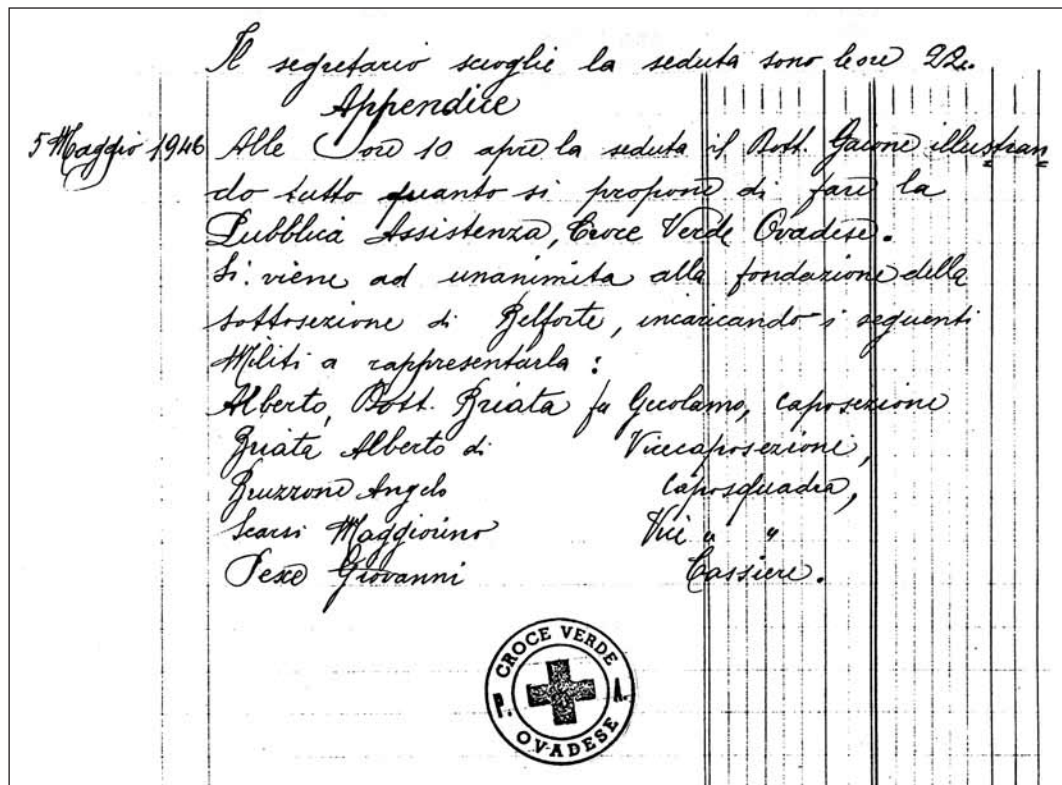 Il segretario scioglie la seduta sono le ore 22.
Appendice
5 Maggio 1946 Alle Ore 10 apre la seduta il Dott. Gaione illustran
do tutto quanto si propone di fare la
Pubblica Assistenza, Croce Verde Ovadese.
Si viene ad unanimita alla fondazione della
sottosezione di Belforte, incaricando i seguenti
Militi a rappresentarla :
Alberto, Dott. Briata fu Gerolamo, caposezione
Briata Alberto di Vicecaposezione,
Bruzzone Angelo Caposquadra,
Scarsi Maggiorino Vice " "
Pesce Giovanni Cassiere.
CROCE VERDE
P. A.
OVADESE